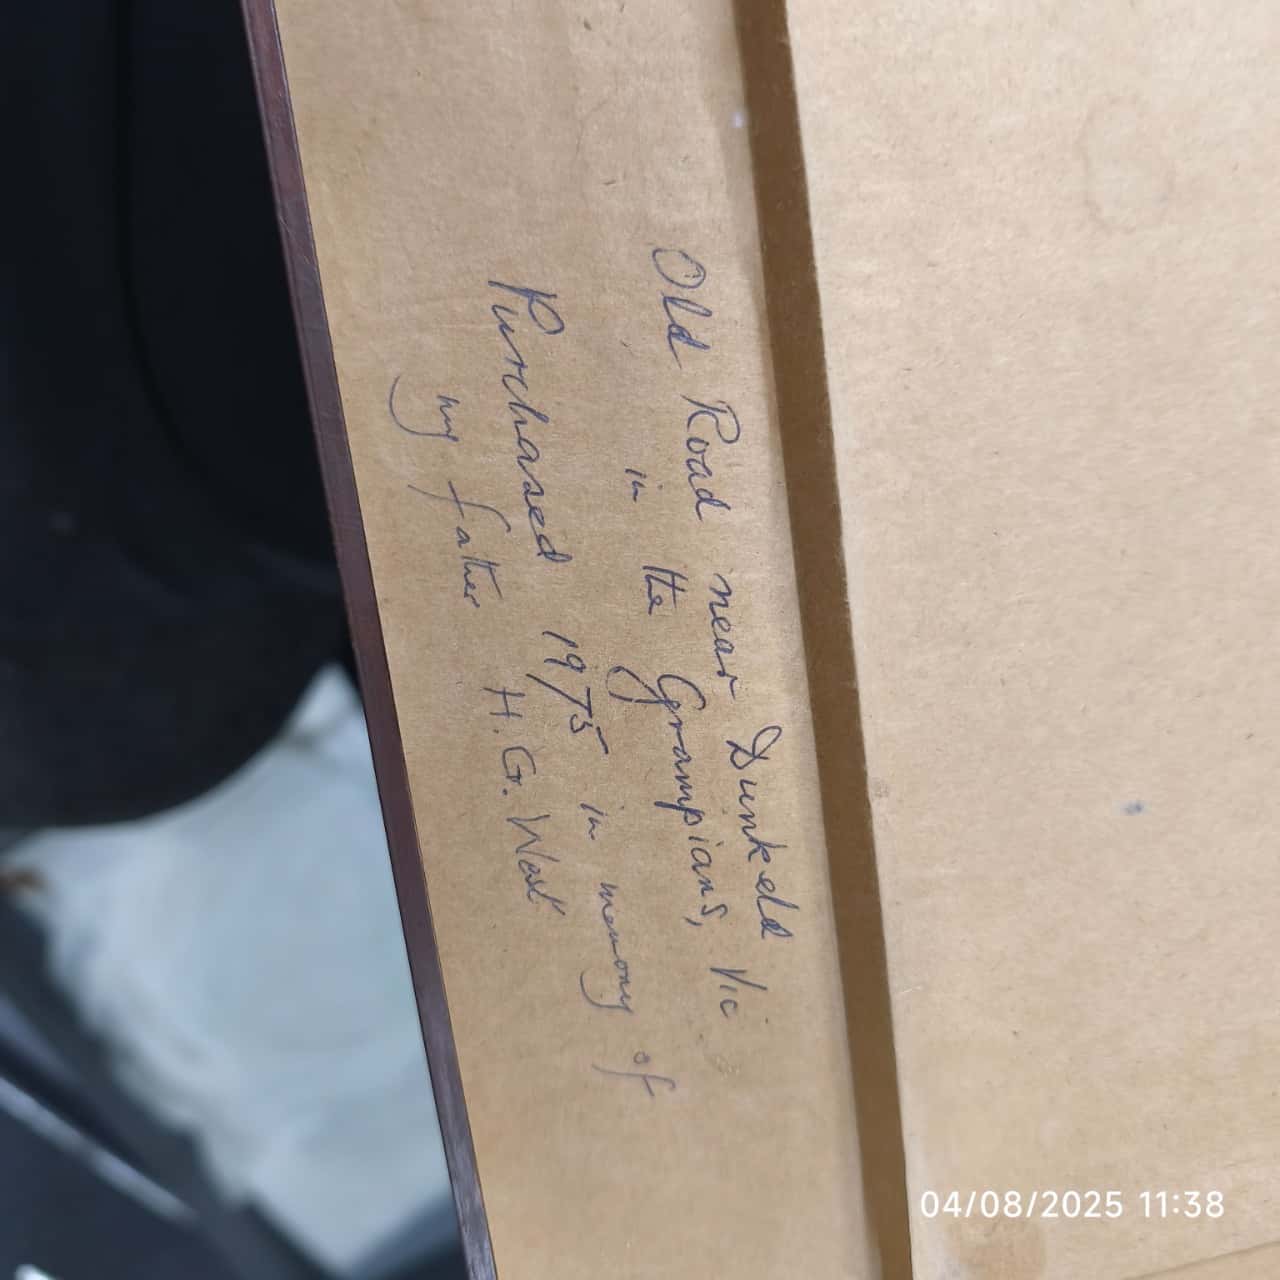 Old Road near Dunkeld
in the Grampians, Vic
Purchased 1975 in memory of
my father H. G. West
04/08/2025 11:38